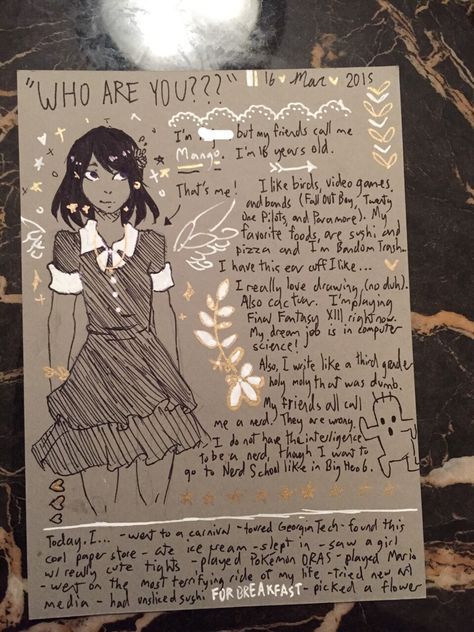 "WHO ARE YOU???"
16 Mar 2015
I'm but my friends call me
Mango. I'm 16 years old.
That's me!
I like birds, video games,
and bands (Fall Out Boy, Twenty
One Pilots, and Paramore). My
favorite foods are sushi and
pizza and I'm Bandom Trash.
I have this ear cuff I like...
I really love drawing (no duh).
Also cactuar. I'm playing
Final Fantasy XIII right now.
My dream job is in computer
science!
Also, I write like a third grader
holy moly that was dumb.
My friends all call
me a nerd. They are wrong.
I do not have the intelligence
to be a nerd, though I want to
go to Nerd School like in Big Hero 6.
Today, I... - went to a carnival - toured Georgia Tech - found this
cool paper store - ate ice cream - slept in - saw a girl
w/ really cute tights - played Pokémon ORAS - played Mario
- went on the most terrifying ride of my life - tried new art
media - had unsliced sushi FOR BREAKFAST - picked a flower